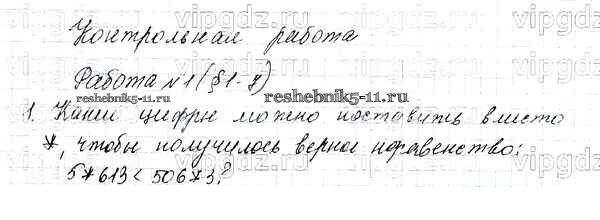 Контрольная работа
Работа №1 (§1-7)
reshebnik5-11.ru
reshebnik5-11.ru
1. Какие цифры можно поставить вместо
*, чтобы получилось верное неравенство:
5*613 < 506*3?
vipgdz.ru